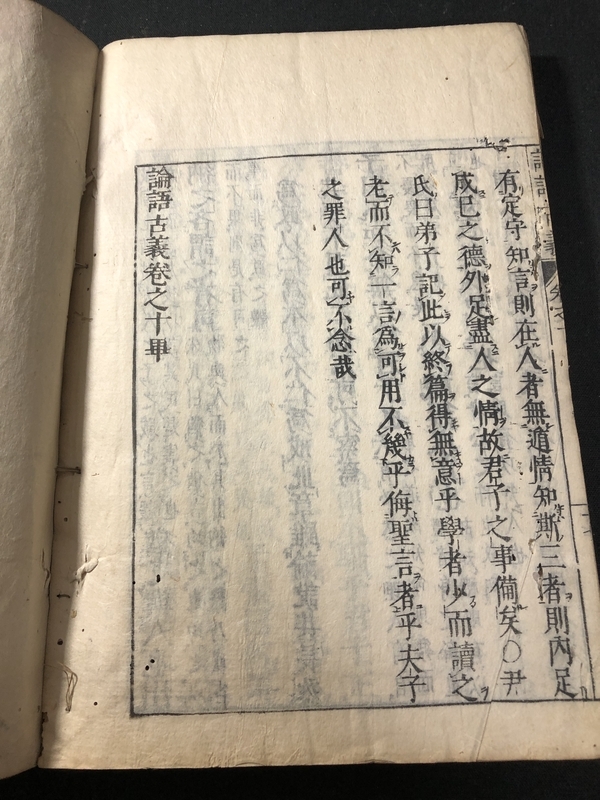 有定守知言則在人者無遁情知斯三者則內足
成己之德外足盡人之情故君子之事備矣○尹
氏曰弟子記此以終篇得無意乎學者少而讀之
老而不知一言爲可用不幾乎侮聖言者乎夫子
之罪人也可不念哉
論語古義卷之十畢